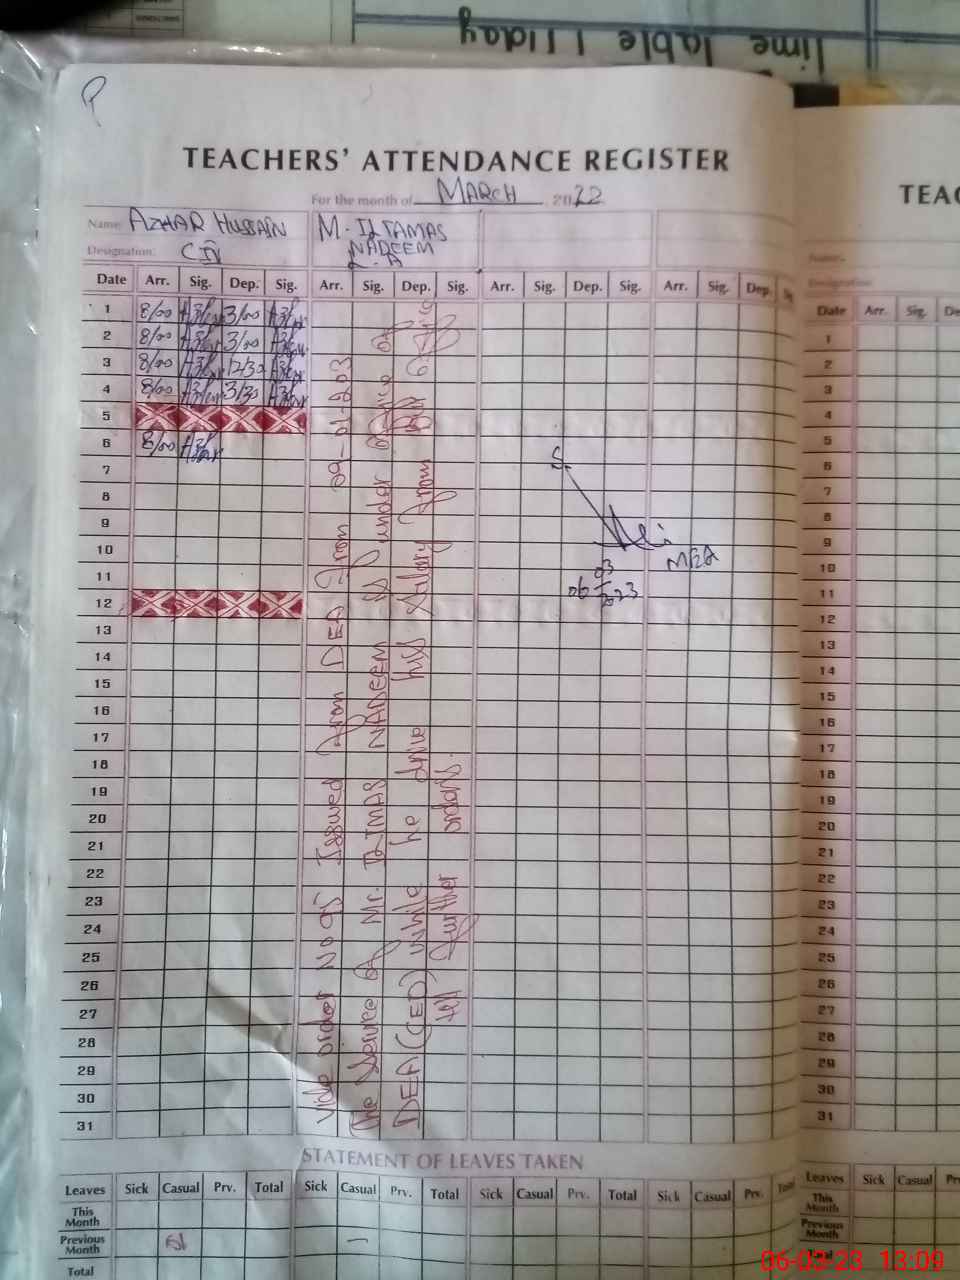 Time Table Friday
TEACHERS' ATTENDANCE REGISTER
For the month of MARCH 2022
Name: AZHAR HUSSAIN M. ILTAMAS NADEEM
Designation:
Date Arr. Sig. Dep. Sig. Arr. Sig. Dep. Sig. Arr. Sig. Dep. Sig. Arr. Sig. Dep.
1 8/00 3/00
2 8/00 3/00
3 8/00 12/30
4 8/00 3/30
5
6 8/00
7
8
9
10
11
12
13
14
15
16
17
18
19
20
21
22
23
24
25
26
27
28
29
30
31
Vide order No 95 Issued from DEA from
the Service of Mr. NADEEM is under
DEA (CED) while he drive his Salary from
till further orders.
MEA
06 03 2023
STATEMENT OF LEAVES TAKEN
Leaves Sick Casual Prv. Total Sick Casual Prv. Total Sick Casual Prv. Total Sick Casual Prv. Total
This Month
Previous Month
Total
TEAC
Name:
Designation:
Date Arr. Sig. De
1
2
3
4
5
6
7
8
9
10
11
12
13
14
15
16
17
18
19
20
21
22
23
24
25
26
27
28
29
30
31
Leaves Sick Casual Pr
This Month
Previous Month
Total
06-03-23 13:09